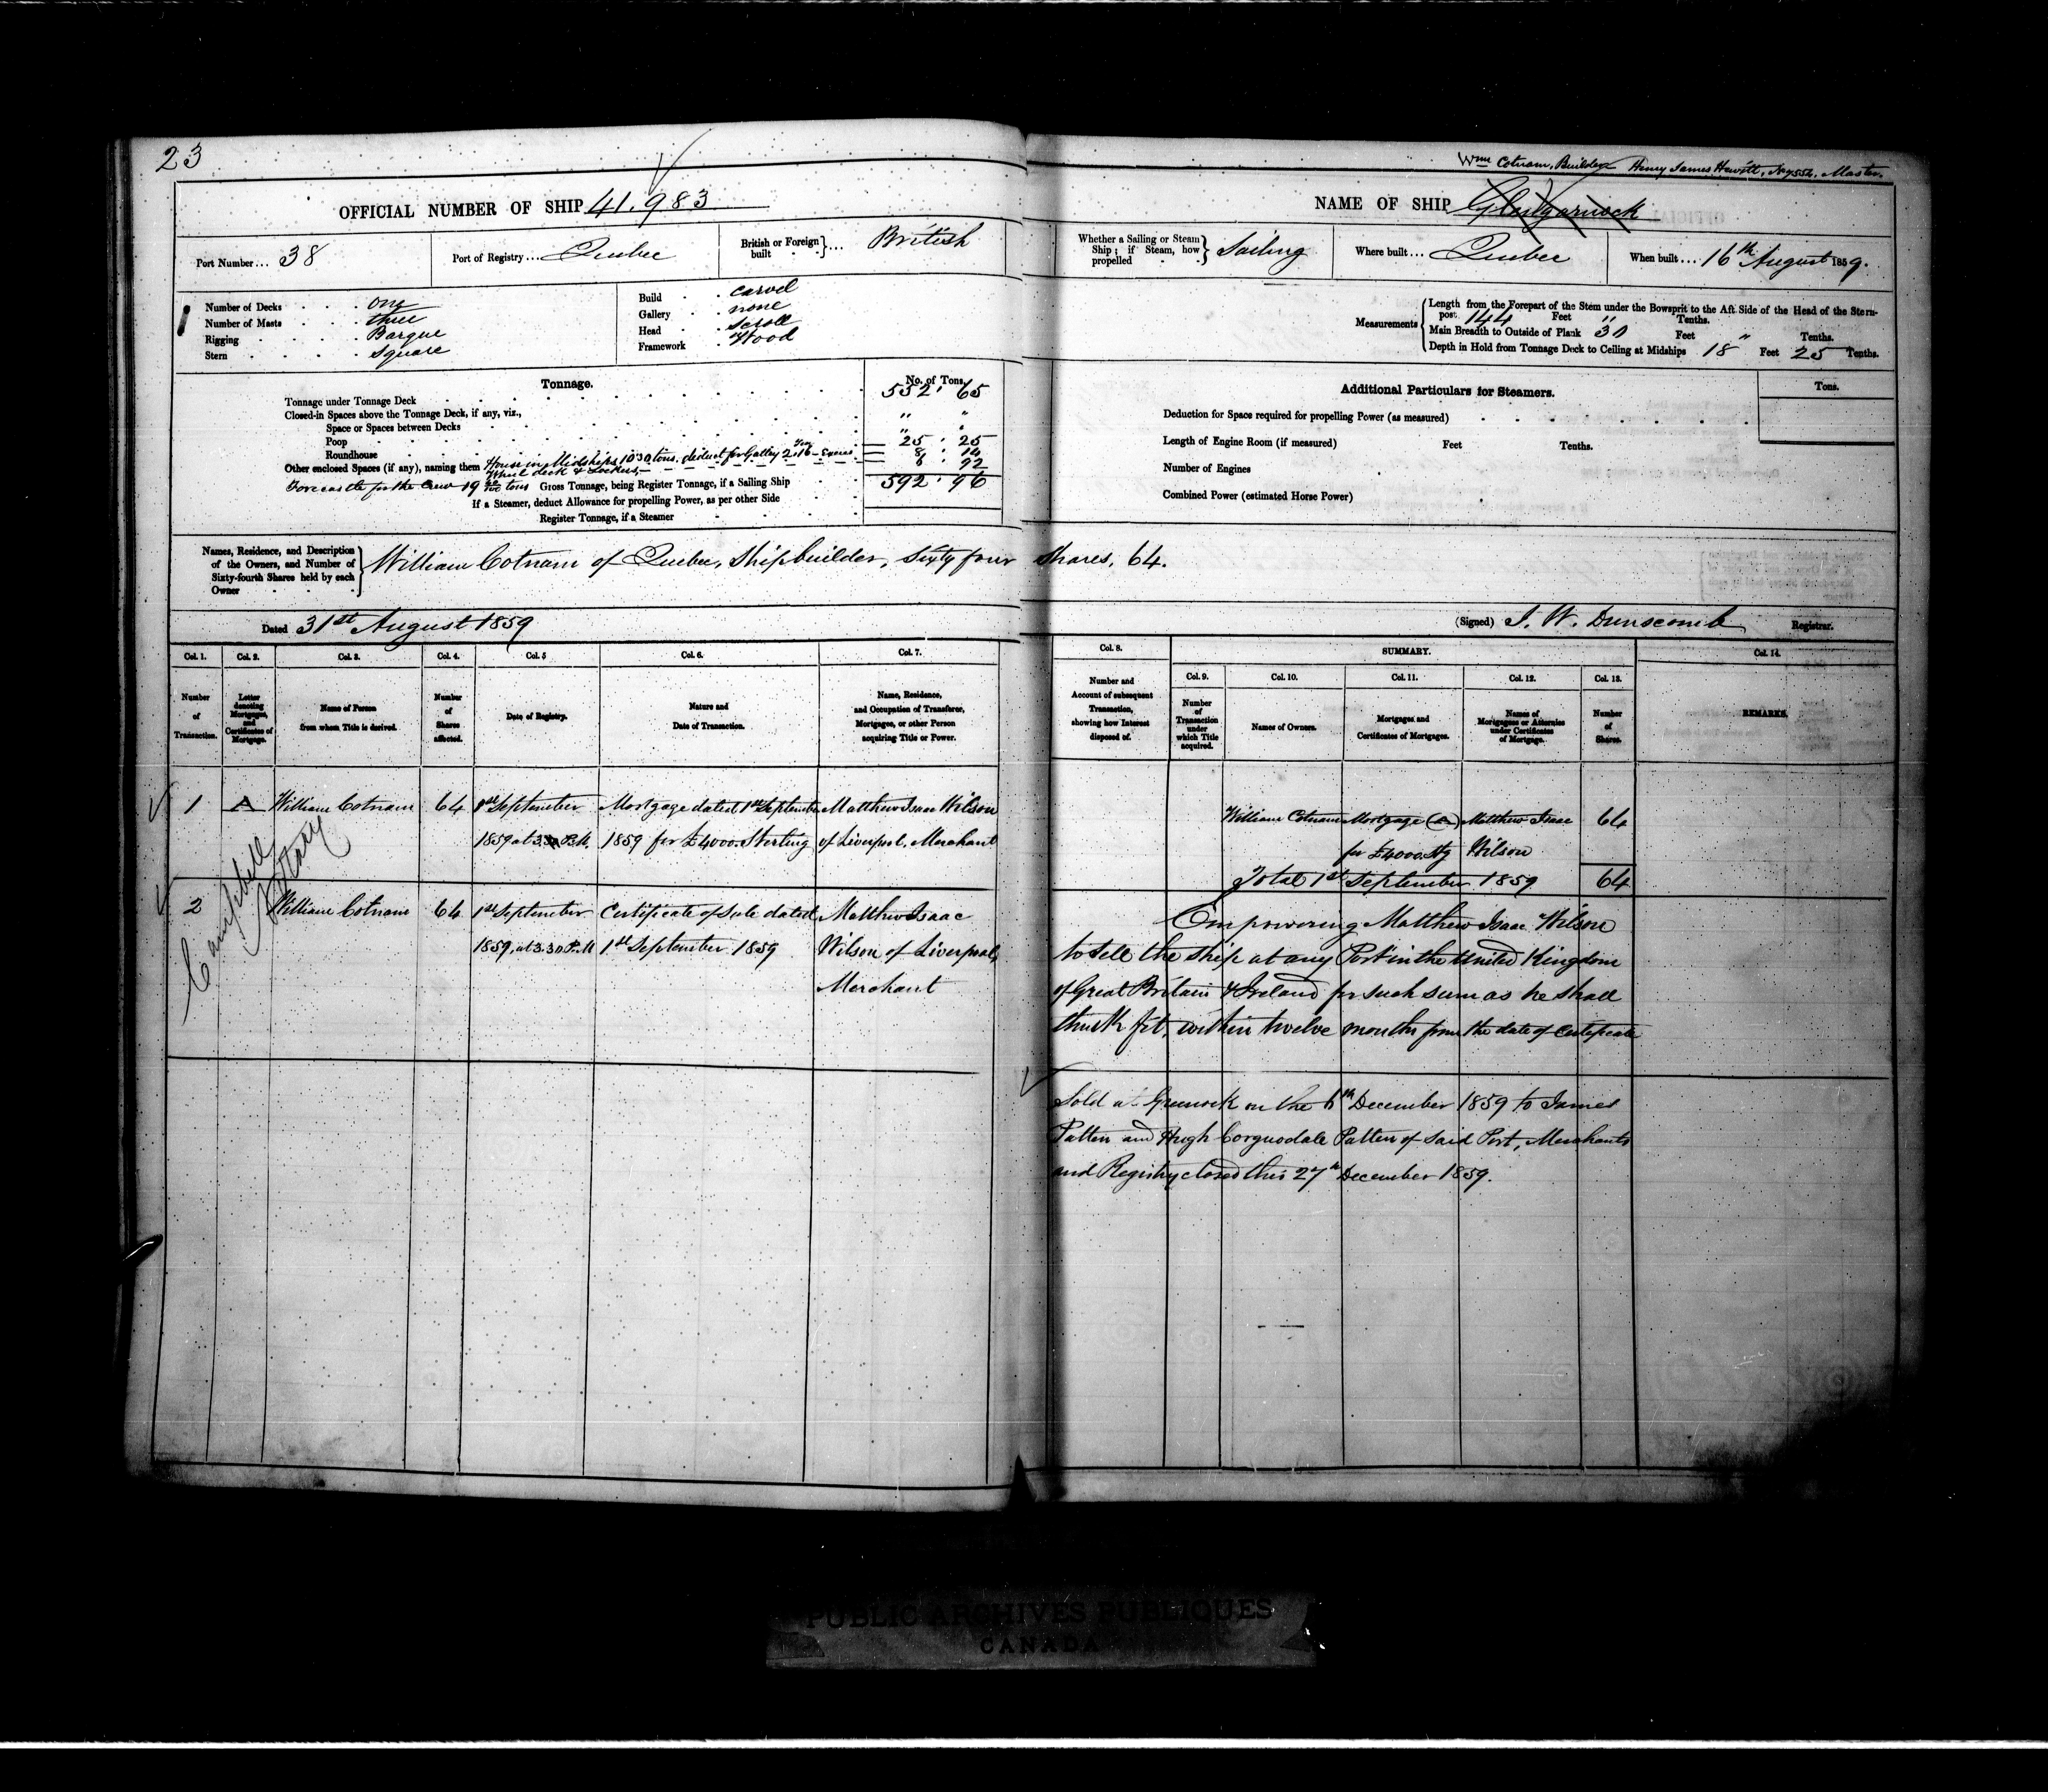 23
Wm Cotnam, Builder Henry James Hewitt, No 7552, Master.
OFFICIAL NUMBER OF SHIP 41.983
NAME OF SHIP Glengarnock
Port Number... 38 Port of Registry... Quebec British or Foreign built } ... British
Whether a Sailing or Steam Ship; if Steam, how propelled } Sailing Where built... Quebec When built... 16th August 1859.
Number of Decks one
Number of Masts three
Rigging Barque
Stern square
Build carvel
Gallery none
Head scroll
Framework Wood
Measurements
Length from the Forepart of the Stem under the Bowsprit to the Aft Side of the Head of the Stern-
post 144 Feet " Tenths.
Main Breadth to Outside of Plank 30 Feet " Tenths.
Depth in Hold from Tonnage Deck to Ceiling at Midships 18 Feet 25 Tenths.
Tonnage. No. of Tons.
Tonnage under Tonnage Deck 552 . 65
Closed-in Spaces above the Tonnage Deck, if any, viz., " "
Space or Spaces between Decks " "
Poop 25 . 25
Roundhouse
Other enclosed Spaces (if any), naming them House in Midships 10.30 tons. deduct for Galley 2.16 - Excess 8 . 14
Wheel deck & Lockers 6 . 92
Forecastle for the Crew 19 tons Gross Tonnage, being Register Tonnage, if a Sailing Ship 592 . 96
If a Steamer, deduct Allowance for propelling Power, as per other Side
Register Tonnage, if a Steamer
Additional Particulars for Steamers. Tons.
Deduction for Space required for propelling Power (as measured)
Length of Engine Room (if measured) Feet Tenths.
Number of Engines
Combined Power (estimated Horse Power)
Names, Residence, and Description
of the Owners, and Number of
Sixty-fourth Shares held by each
Owner
William Cotnam of Quebec, Shipbuilder, Sixty four Shares, 64.
Dated 31st August 1859 (Signed) J. W. Dunscomb Registrar.
Col. 1. Col. 2. Col. 3. Col. 4. Col. 5 Col. 6. Col. 7.
Number of Transaction.
Letter denoting Mortgages, and Certificates of Mortgage.
Name of Person from whom Title is derived.
Number of Shares affected.
Date of Registry.
Nature and Date of Transaction.
Name, Residence, and Occupation of Transferee, Mortgagee, or other Person acquiring Title or Power.
Col. 8. SUMMARY. Col. 14.
Col. 9. Col. 10. Col. 11. Col. 12. Col. 13.
Number and Account of subsequent Transaction, showing how Interest disposed of.
Number of Transaction under which Title acquired.
Names of Owners.
Mortgages and Certificates of Mortgages.
Names of Mortgagees or Attornies under Certificates of Mortgage.
Number of Shares.
REMARKS.
1 A William Cotnam 64 1st September Mortgage dated 1st September Matthew Isaac Wilson
1859 at 3.30 P.M. 1859 for £4000. Sterling of Liverpool, Merchant
William Cotnam Mortgage (A) Matthew Isaac 64
for £4000. Stg Wilson
Total 1st September 1859 64
Campbell
Notary
2 William Cotnam 64 1st September Certificate of Sale dated Matthew Isaac
1859, at 3.30 P.M 1st September 1859 Wilson of Liverpool,
Merchant
Empowering Matthew Isaac Wilson
to sell the ship at any Port in the United Kingdom
of Great Britain & Ireland for such sum as he shall
think fit, within twelve months from the date of Certificate
Sold at Greenock on the 6th December 1859 to James
Patten and Hugh Corquodale Patten of said Port, Merchants
and Registry closed this 27th December 1859.
PUBLIC ARCHIVES PUBLIQUES
CANADA